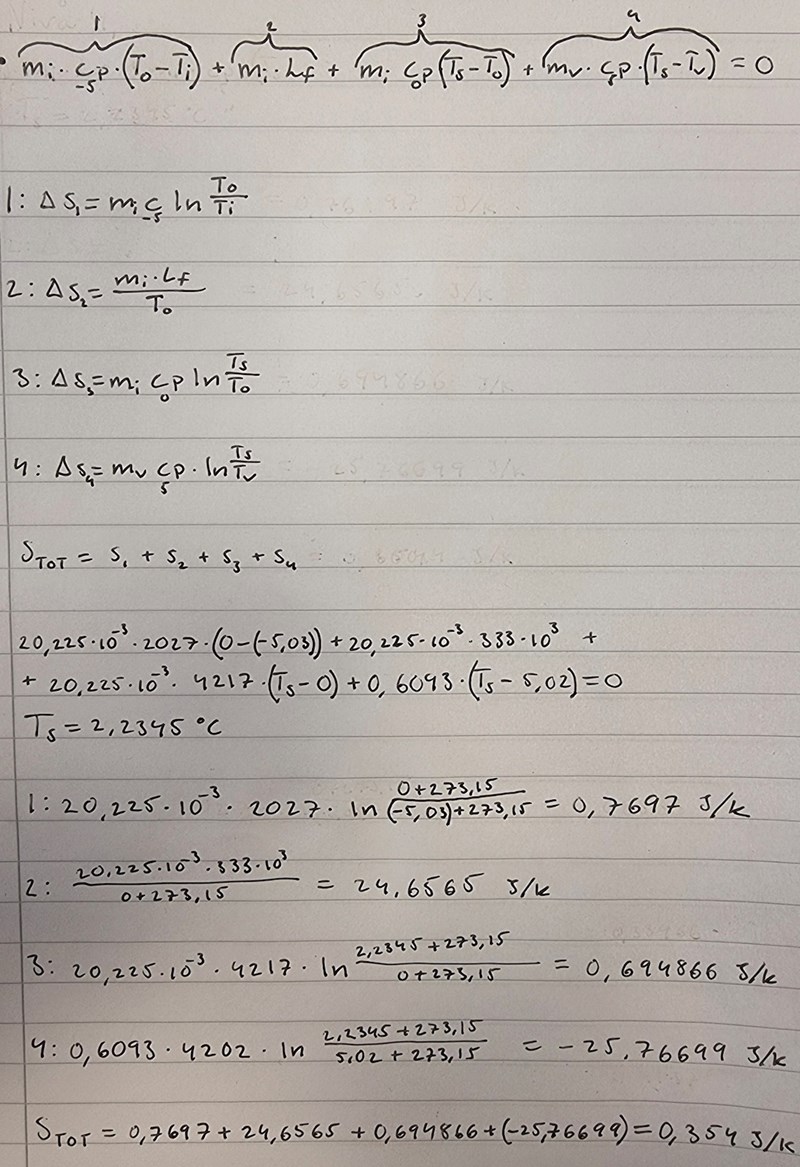 1 2 3 4
• mᵢ · cp₋₅ · (T₀ − Tᵢ) + mᵢ · Lf + mᵢ cp₀ (Ts − T₀) + mᵥ · cp₅ · (Ts − Tᵥ) = 0
1: ΔS₁ = mᵢ c₋₅ ln T₀/Tᵢ
2: ΔS₂ = mᵢ · Lf / T₀
3: ΔS₃ = mᵢ cp₀ ln Ts/T₀
4: ΔS₄ = mᵥ cp₅ · ln Ts/Tᵥ
S_TOT = S₁ + S₂ + S₃ + S₄
20,225·10⁻³ · 2027 · (0 − (−5,03)) + 20,225·10⁻³ · 333·10³ +
+ 20,225·10⁻³ · 4217 · (Ts − 0) + 0,6093 · (Ts − 5,02) = 0
Ts = 2,2345 °C
1: 20,225·10⁻³ · 2027 · ln (0+273,15)/((−5,03)+273,15) = 0,7697 J/k
2: (20,225·10⁻³ · 333·10³)/(0+273,15) = 24,6565 J/k
3: 20,225·10⁻³ · 4217 · ln (2,2345+273,15)/(0+273,15) = 0,694866 J/k
4: 0,6093 · 4202 · ln (2,2345+273,15)/(5,02+273,15) = −25,76699 J/k
S_TOT = 0,7697 + 24,6565 + 0,694866 + (−25,76699) = 0,354 J/k